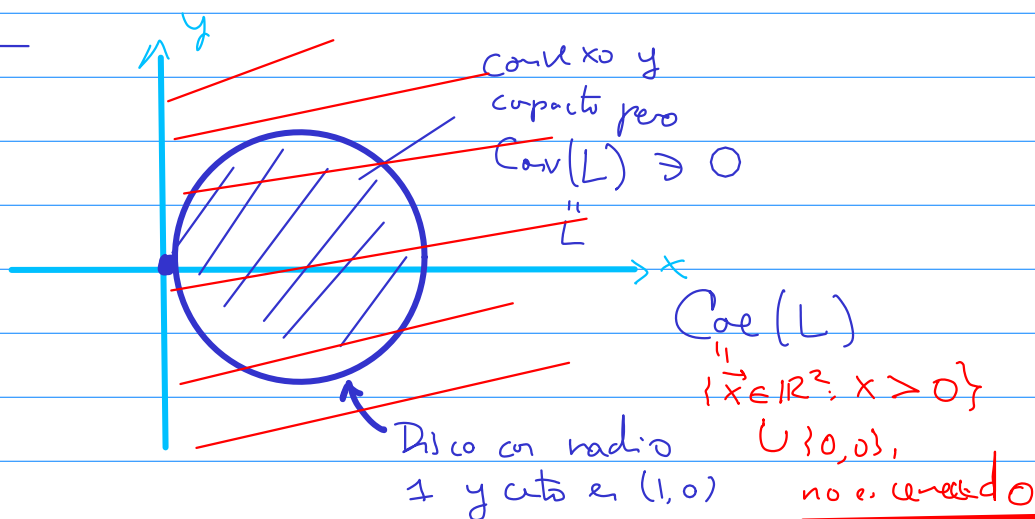 y
convexo y
compacto pero
Conv(L) ∋ 0
"
L
x
Coe(L)
"
{x⃗ ∈ ℝ²: x > 0}
∪ {0,0},
no es cerrado
Disco con radio
1 y cto en (1,0)